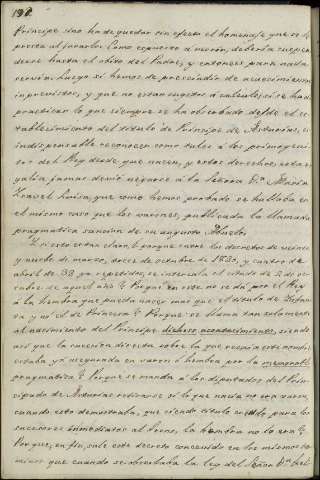 192.
Príncipe sino ha de quedar sin efecto el homenaje que se le
presta al jurarlo. Como espurio a unción, debería suspen
derse hasta el óbito del Padre, y entonces para nada
serviría. luego si hemos de prescindir de acontecimientos
imprevistos, y que no estan sugetos á calculo, si se ha de
practicar lo que siempre se ha observado desde el es
tablecimiento del titulo de Príncipe de Asturias, es
indispensable reconocer como tales á los primogeni
tos del Rey desde que nacen, y estos derechos, esta re
galía jamas debió negarse á la Señora Dª María
Isavel Luisa, que como hemos probado se hallaba en
el mismo caso que los varones, publicada la llamada
pragmatica sancion de su augusto Abuelo.
Y si esto es tan claro, ¿porque entre los decretos de veinte
y nueve de marzo, doce de octubre de 1830, y cuatro de
abril de 33 ya repetidos, se intercala el citado de 2 de oc
tubre de aquel año? ¿Porque en este no se dá por el Rey
á la hembra que pueda nacer mas que el titulo de Infan
ta y no el de Princesa? ¿Porque se llama tan solamente
al nacimiento del Príncipe dichoso acontecimiento, siendo
asi que la sucesion directa sobre la que recaía este nombre
estaba ya asegurada en varon ó hembra por la memorable
pragmatica? ¿Porque se manda á los diputados del Prin
cipado de Asturias retirarse si lo que nacía no era varon,
cuando esto demostraba, que siendo titulo creado para los
sucesores inmediatos al trono, la hembra no lo era?
¿Porque, en fin, sale este decreto concevido en los mismos ter
minos que cuando se observaba la ley del Señor Dn. Feli